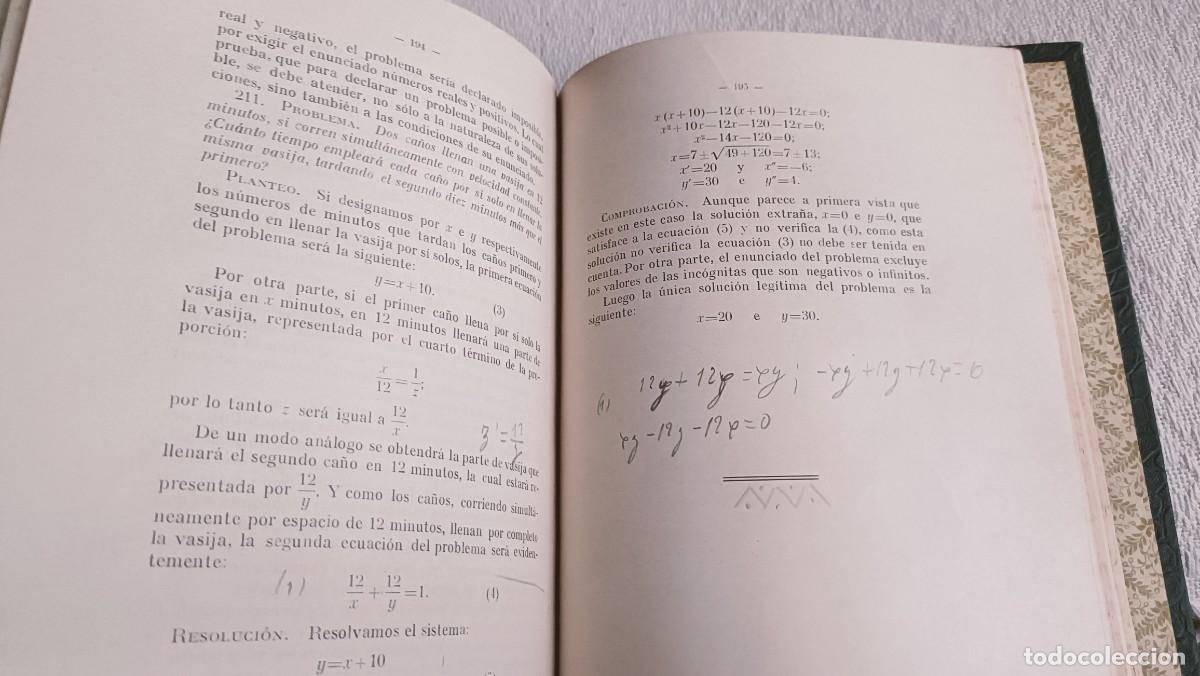 — 194 —
real y negativo, el problema sería declarado imposible,
por exigir el enunciado números reales y positivos. Lo cual
prueba, que para declarar un problema posible o imposi-
ble, se debe atender, no sólo a la naturaleza de sus solu-
ciones, sino también a las condiciones de su enunciado.
211. PROBLEMA. Dos caños llenan una vasija en 12
minutos, si corren simultáneamente con velocidad constante.
¿Cuánto tiempo empleará cada caño por si solo en llenar la
misma vasija, tardando el segundo diez minutos más que el
primero?
PLANTEO. Si designamos por x e y respectivamente
los números de minutos que tardan los caños primero y
segundo en llenar la vasija por sí solos, la primera ecuación
del problema será la siguiente:
y=x+10. (3)
Por otra parte, si el primer caño llena por sí solo la
vasija en x minutos, en 12 minutos llenará una parte de
la vasija, representada por el cuarto término de la pro-
porción:
x/12 = 1/z;
por lo tanto z será igual a 12/x.
z' = 12/y
De un modo análogo se obtendrá la parte de vasija que
llenará el segundo caño en 12 minutos, la cual estará re-
presentada por 12/y. Y como los caños, corriendo simultá-
neamente por espacio de 12 minutos, llenan por completo
la vasija, la segunda ecuación del problema será eviden-
temente:
(1) 12/x + 12/y = 1. (4)
RESOLUCIÓN. Resolvamos el sistema:
y=x+10
— 195 —
x(x+10)—12(x+10)—12x=0;
x²+10x—12x—120—12x=0;
x²—14x—120=0;
x=7±√49+120=7±13;
x'=20 y x''=—6;
y'=30 e y''=4.
COMPROBACIÓN. Aunque parece a primera vista que
existe en este caso la solución extraña, x=0 e y=0, que
satisface a la ecuación (5) y no verifica la (4), como esta
solución no verifica la ecuación (3) no debe ser tenida en
cuenta. Por otra parte, el enunciado del problema excluye
los valores de las incógnitas que son negativos o infinitos.
Luego la única solución legítima del problema es la
siguiente:
x=20 e y=30.
(1) 12y+12x=xy; -xy+12y+12x=0
xy-12y-12x=0
todocoleccion